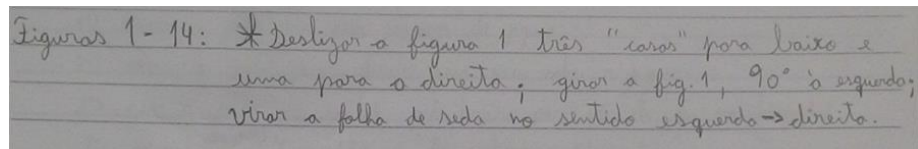 Figuras 1 - 14: * Deslizar a figura 1 três "casas" para baixo e
uma para a direita; girar a fig. 1, 90° à esquerda;
virar a folha de seda no sentido esquerda → direita.